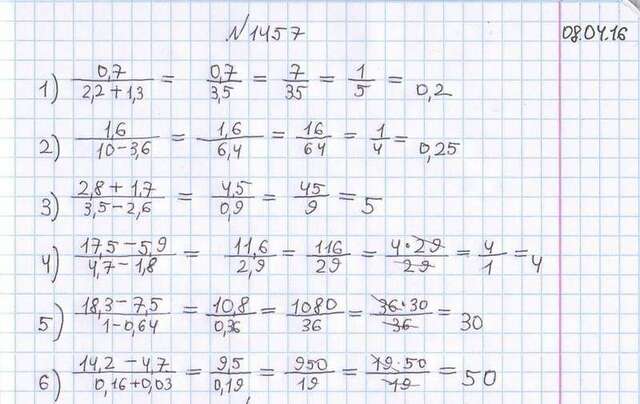 №1457
08.04.16
1) 0,7 / 2,2+1,3 = 0,7 / 3,5 = 7 / 35 = 1 / 5 = 0,2
2) 1,6 / 10-3,6 = 1,6 / 6,4 = 16 / 64 = 1 / 4 = 0,25
3) 2,8+1,7 / 3,5-2,6 = 4,5 / 0,9 = 45 / 9 = 5
4) 17,5-5,9 / 4,7-1,8 = 11,6 / 2,9 = 116 / 29 = 4·29 / 29 = 4 / 1 = 4
5) 18,3-7,5 / 1-0,64 = 10,8 / 0,36 = 1080 / 36 = 36·30 / 36 = 30
6) 14,2-4,7 / 0,16+0,03 = 9,5 / 0,19 = 950 / 19 = 19·50 / 19 = 50